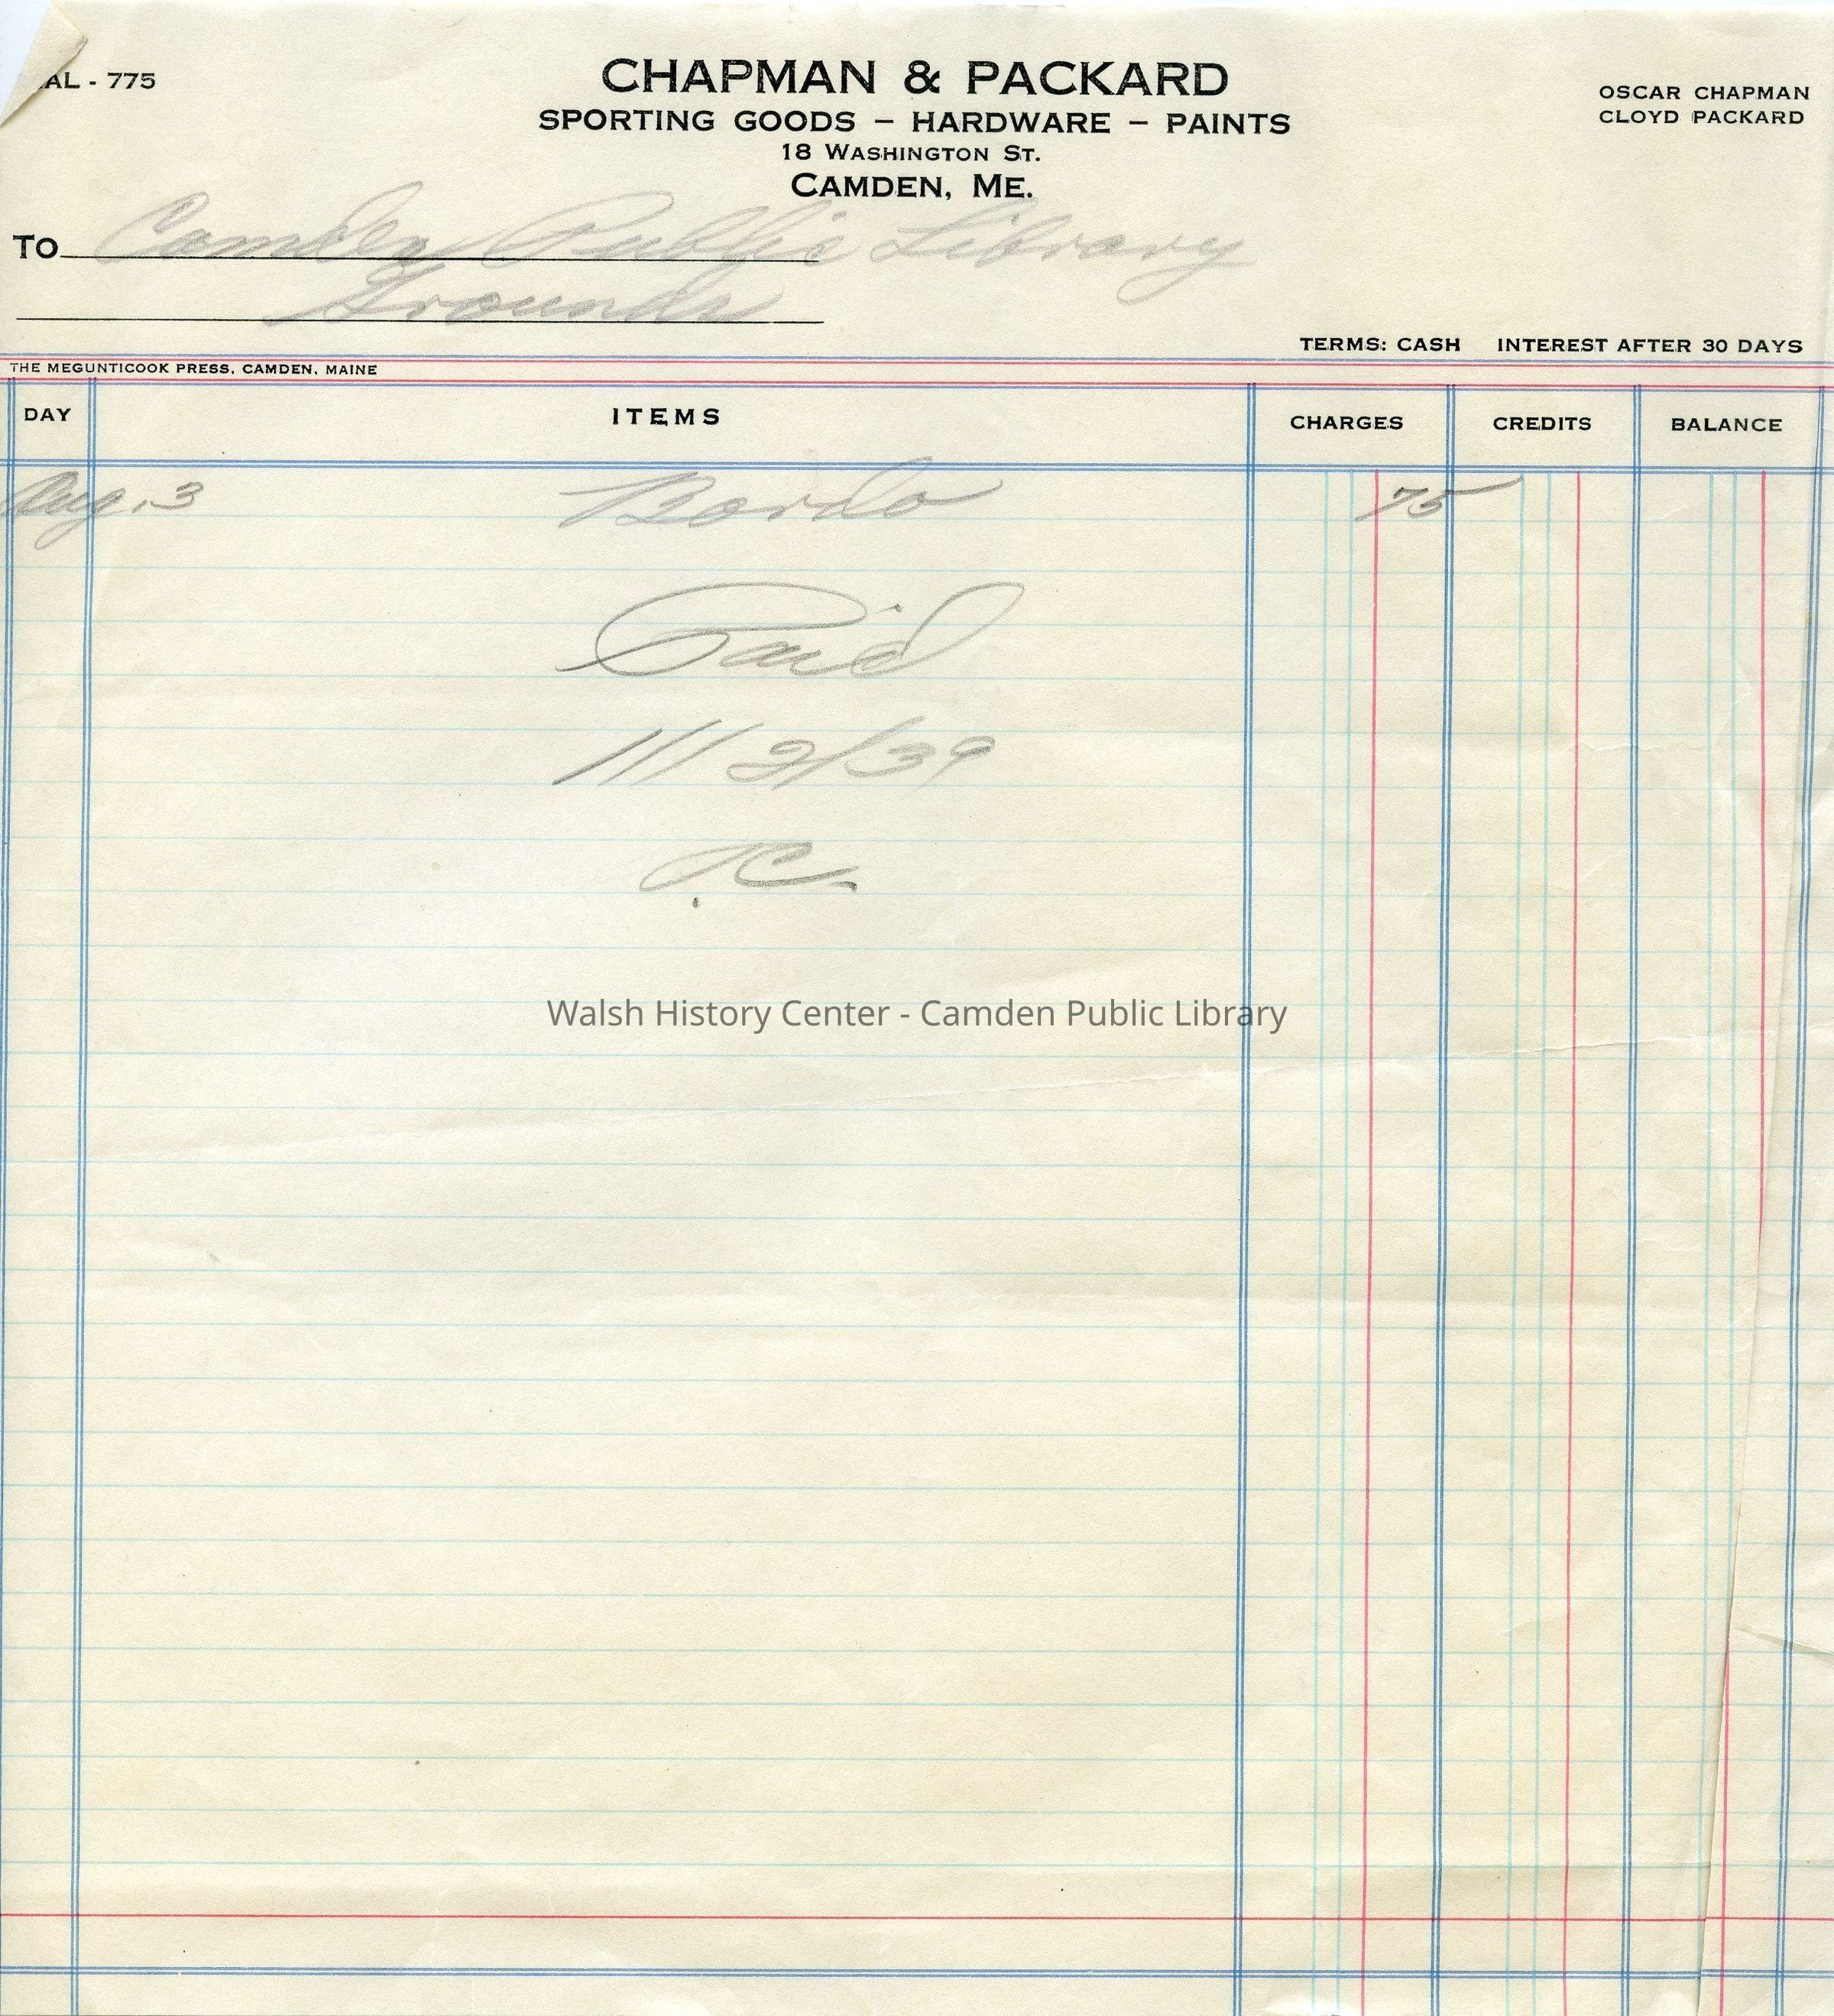 AL - 775
CHAPMAN & PACKARD
SPORTING GOODS - HARDWARE - PAINTS
18 WASHINGTON ST.
CAMDEN, ME.
OSCAR CHAPMAN
CLOYD PACKARD
To Camden Public Library
Grounds
TERMS: CASH INTEREST AFTER 30 DAYS
THE MEGUNTICOOK PRESS, CAMDEN, MAINE
DAY ITEMS CHARGES CREDITS BALANCE
Aug. 3 Bordo 75
Paid
11/2/39
Walsh History Center - Camden Public Library